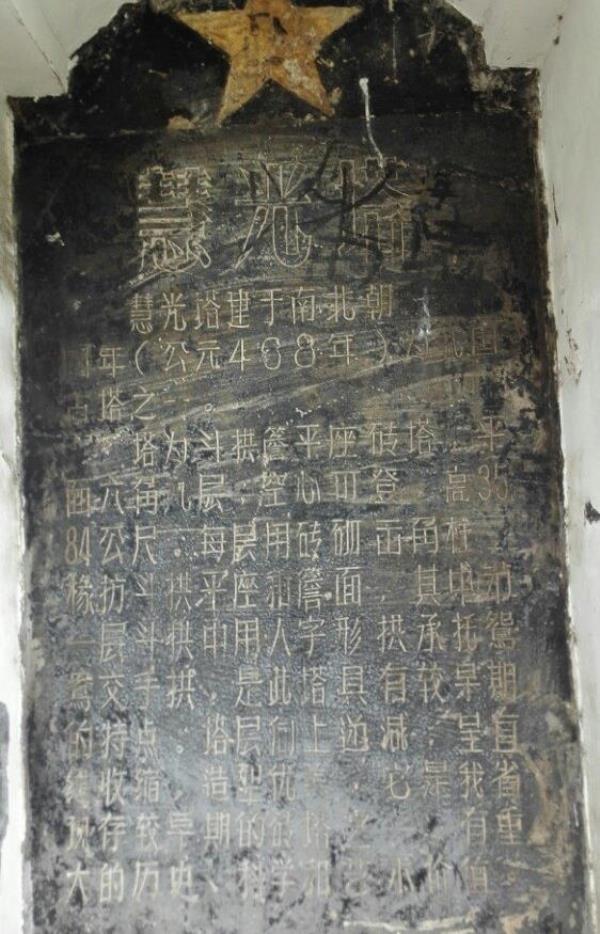 慧光塔
慧光塔建于南北朝
年(公元468年)我国
古塔之一。
塔为斗拱簷平座砖塔,平
面六角九层,空心可登,高35.
84公尺。每层用砖砌出角柱
椽枋斗拱平座和簷面,其
一层斗拱中用人字形拱承托鸳
鸯交手拱,是此塔具有较期
的特点。塔层向上减,呈自
收缩,造型优,它是我省
现存较早期的塔之有重
大的历史、科学和艺术价值。